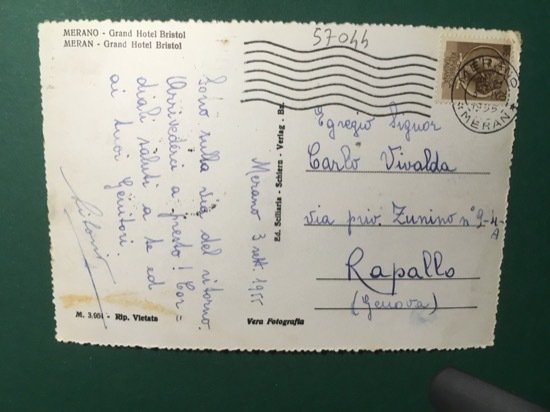 MERANO - Grand Hotel Bristol
MERAN - Grand Hotel Bristol
Sono sulla via del ritorno.
Arrivederci a presto! Cor=
diali saluti a te ed
ai tuoi Genitori.
Merano 3 sett. 1955
M. 3,954 - Rip. Vietata
Vera Fotografia
Ed. Sciliaria - Schlern - Verlag - Bz.
57044
MERANO
MERAN
Egregio Signor
Carlo Vivalda
via priv. Zunino n° 9-4-
A
Rapallo
(Genova)